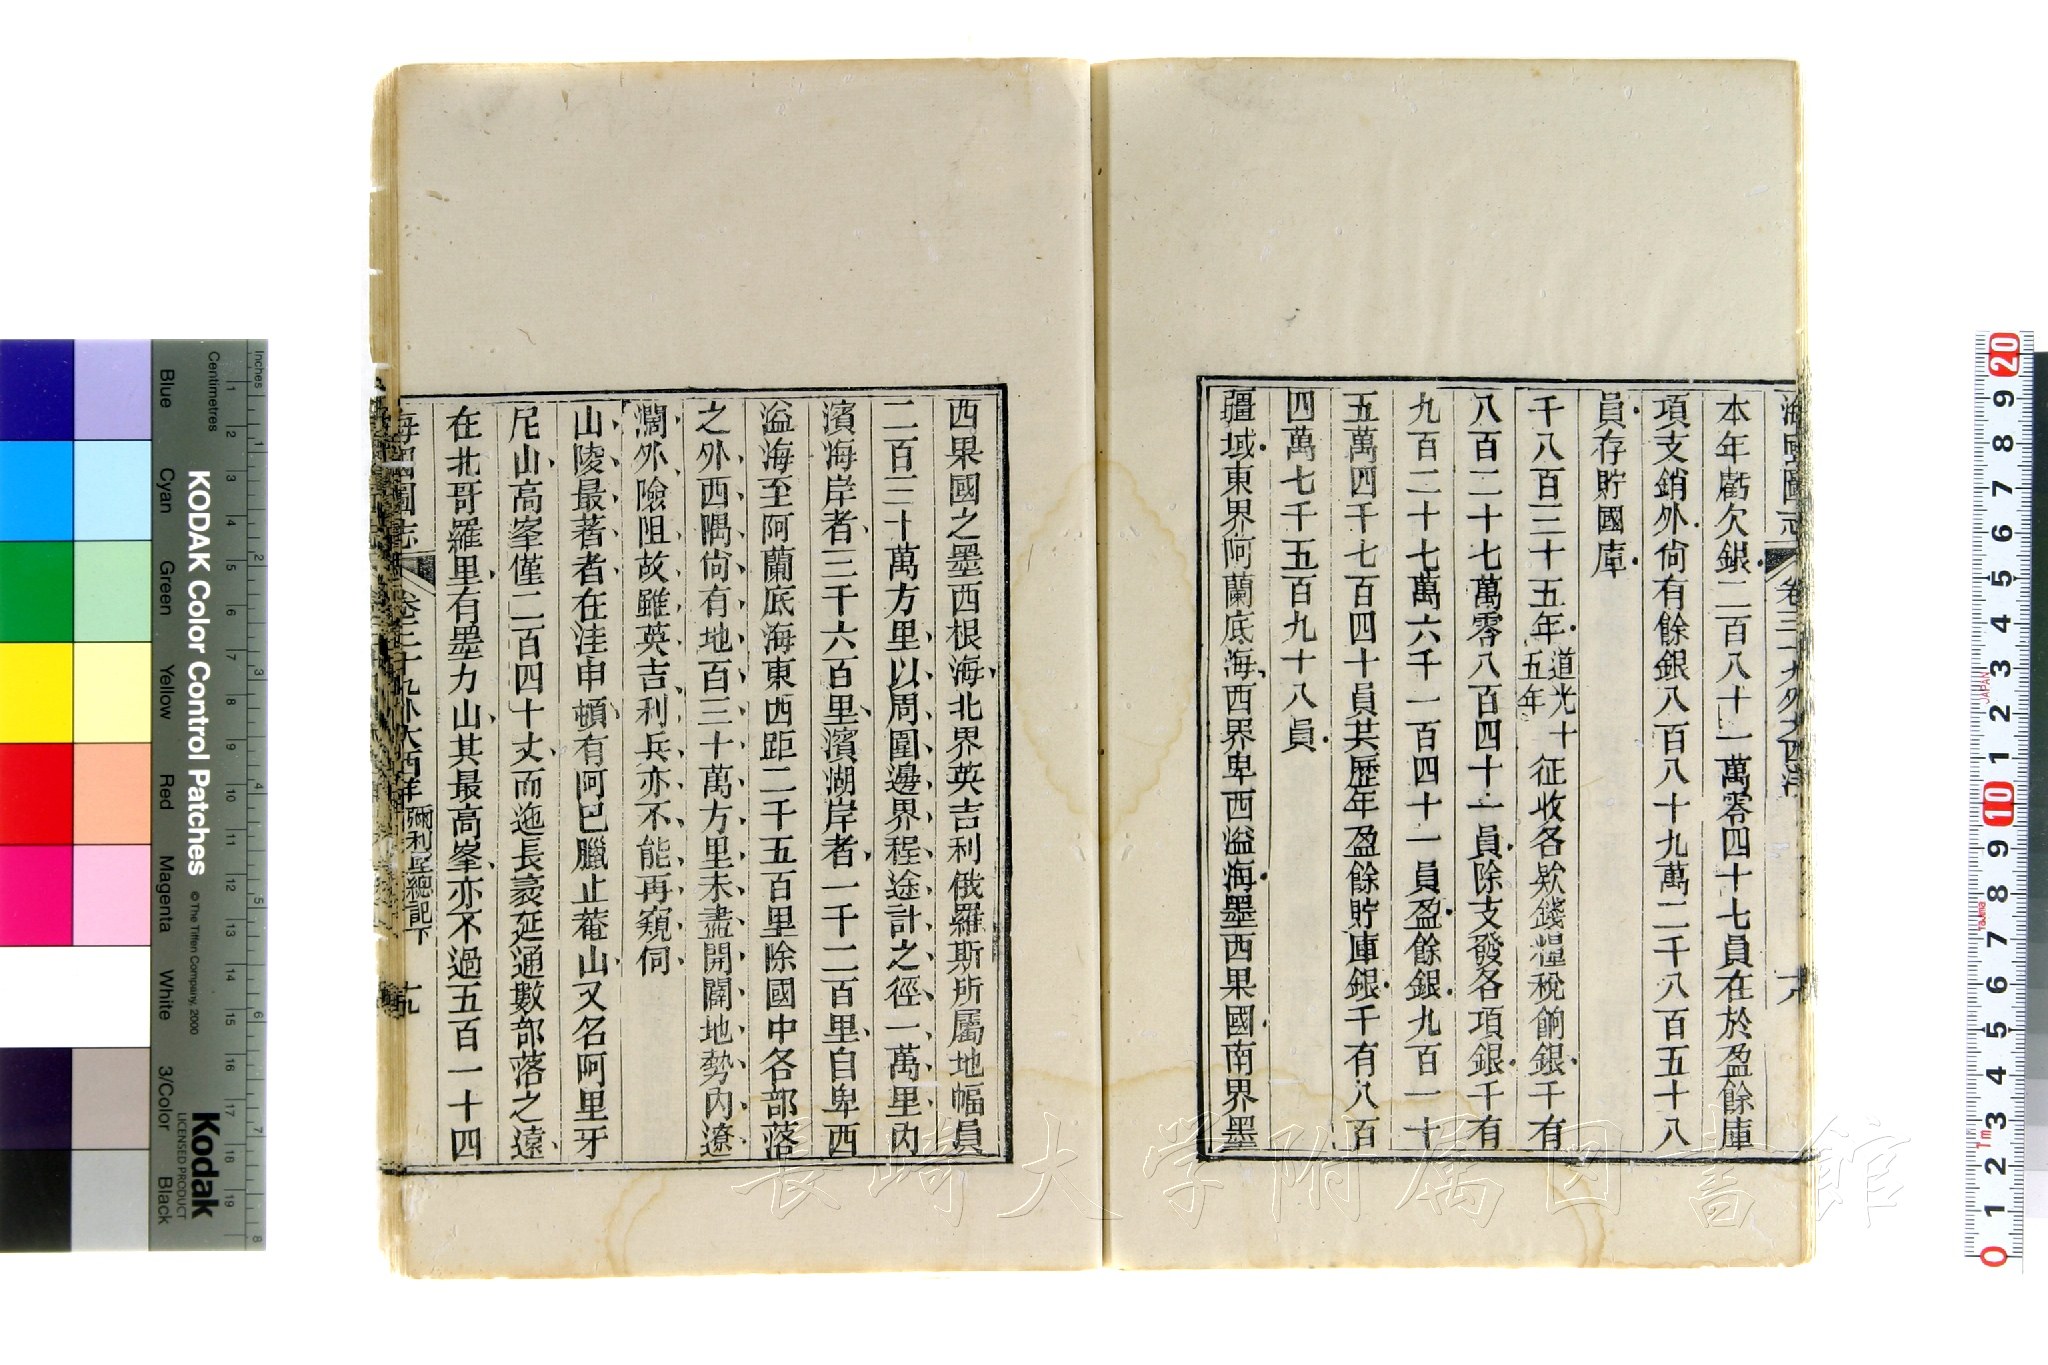 海國圖志 卷三十九外大西洋 十八
本年虧欠銀二百八十一萬零四十七員在於盈餘庫
項支銷外尙有餘銀八百八十九萬二千八百五十八
員存貯國庫
千八百三十五年道光十五年征收各欵錢糧稅餉銀千有
八百二十七萬零八百四十一員除支發各項銀千有
九百二十七萬六千一百四十一員盈餘銀九百一十
五萬四千七百四十員其歷年盈餘貯庫銀千有八百
四萬七千五百九十八員
疆域東界阿蘭底海西界卑西溢海墨西果國南界墨
西果國之墨西根海北界英吉利俄羅斯所屬地幅員
二百三十萬方里以周圍邊界程途計之徑一萬里內
濱海岸者三千六百里濱湖岸者一千二百里自卑西
溢海至阿蘭底海東西距二千五百里除國中各部落
之外西隅尙有地百三十萬方里未盡開闢地勢內遼
濶外險阻故雖英吉利兵亦不能再窺伺
山陵最著者在洼申頓有阿巴臘止菴山又名阿里牙
尼山高峯僅二百四十丈而迤長袤延通數部落之遠
在北哥羅里有墨力山其最高峯亦不過五百一十四
海國圖志 卷三十九外大西洋 彌利堅總記下 十九
Inches
Centimetres
1 2 3 4 5 6 7 8 9 10 11 12 13 14 15 16 17 18 19
1 2 3 4 5 6 7 8
KODAK Color Control Patches
© The Tiffen Company, 2000
Kodak
LICENSED PRODUCT
Blue Cyan Green Yellow Red Magenta White 3/Color Black
20 9 8 7 6 5 4 3 2 1 10 9 8 7 6 5 4 3 2 1 0
JAPAN
1m
長崎大学附属図書館